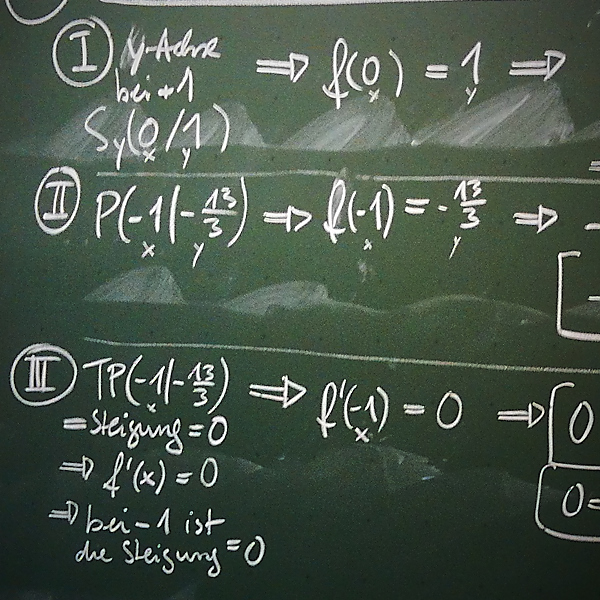 I y-Achse ⇒ f(0) = 1 ⇒
bei +1 x y
Sy(0/1)
x y
II P(-1|-13/3) ⇒ f(-1) = -13/3 ⇒
x y x y
III TP(-1|-13/3) ⇒ f'(-1) = 0 ⇒ [0
x x
= Steigung = 0
⇒ f'(x) = 0
0=
⇒ bei -1 ist
die Steigung = 0